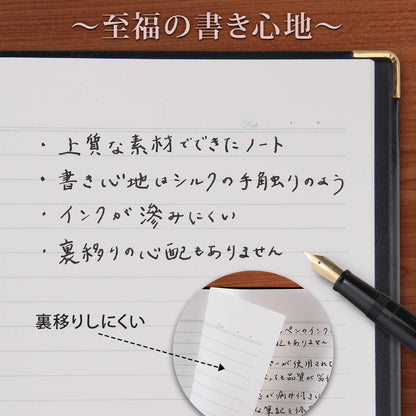 ～至福の書き心地～
Date
・上質な素材でできたノート
・書き心地はシルクの手触りのよう
・インクが滲みにくい
・裏移りの心配もありません
裏移りしにくい
ペンのインク
配もありません
ーが使用されて
っても品質が劣化